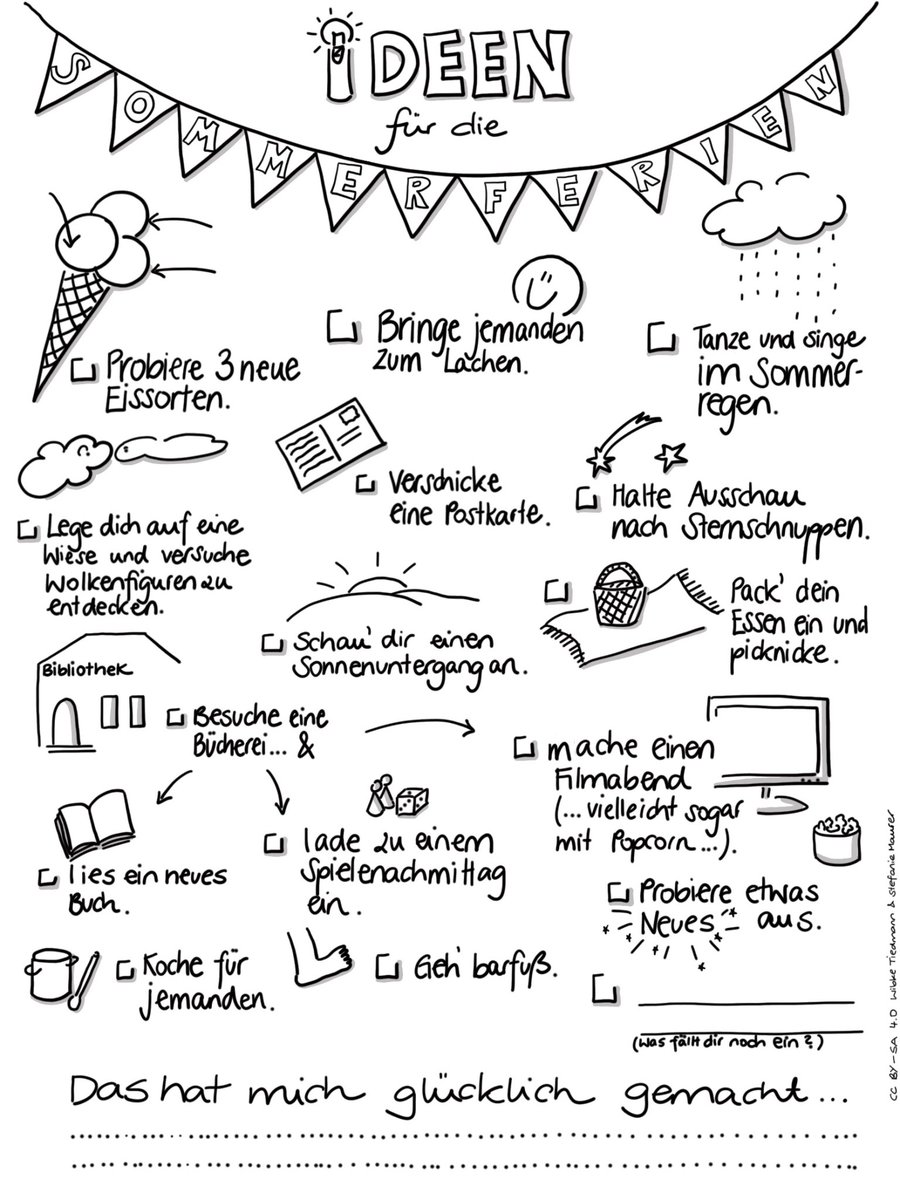 iDEEN
für die
SOMMERFERIEN
Probiere 3 neue
Eissorten.
Bringe jemanden
zum Lachen.
Tanze und singe
im Sommer-
regen.
Lege dich auf eine
Wiese und versuche
Wolkenfiguren zu
entdecken.
Verschicke
eine Postkarte.
Halte Ausschau
nach Sternschnuppen.
Schau' dir einen
Sonnenuntergang an.
Pack' dein
Essen ein und
picknicke.
Bibliothek
Besuche eine
Bücherei... &
lies ein neues
Buch.
lade zu einem
Spielenachmittag
ein.
mache einen
Filmabend
(...vielleicht sogar
mit Popcorn...).
Probiere etwas
Neues aus.
Koche für
jemanden.
Geh' barfuß.
(Was fällt dir noch ein?)
Das hat mich glücklich gemacht...
CC BY-SA 4.0 Wibke Tiedmann & Stefanie Maurer